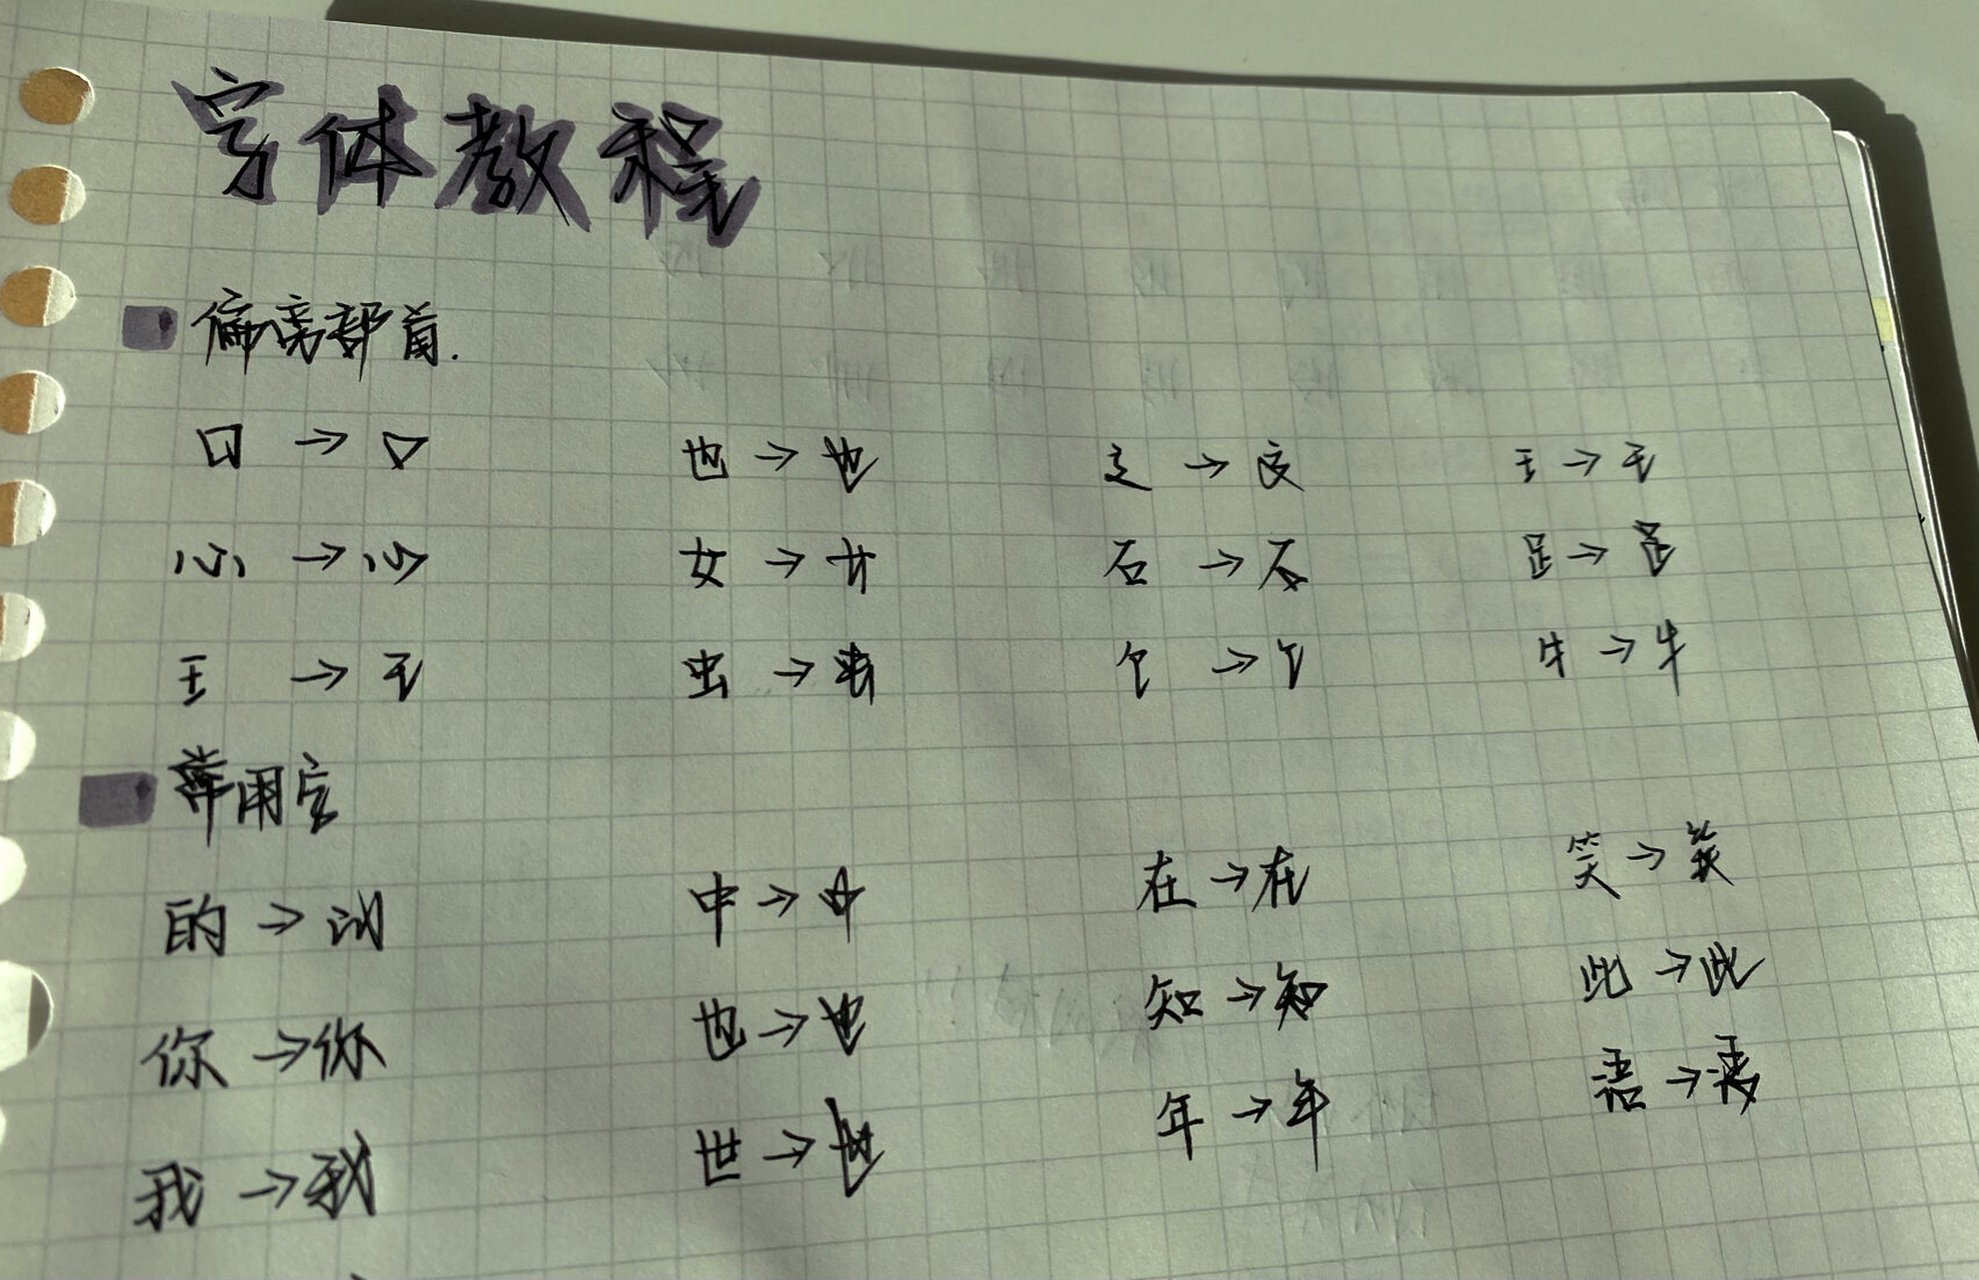 字体教程
偏旁部首.
口 → 口 也 → 也 辶 → 辶 王 → 王
心 → 心 女 → 女 石 → 石 𧾷 → 𧾷
王 → 王 虫 → 虫 饣 → 饣 牛 → 牛
常用字
的 → 的 中 → 中 在 → 在 笑 → 笑
你 → 你 也 → 也 知 → 知 此 → 此
我 → 我 世 → 世 年 → 年 语 → 语